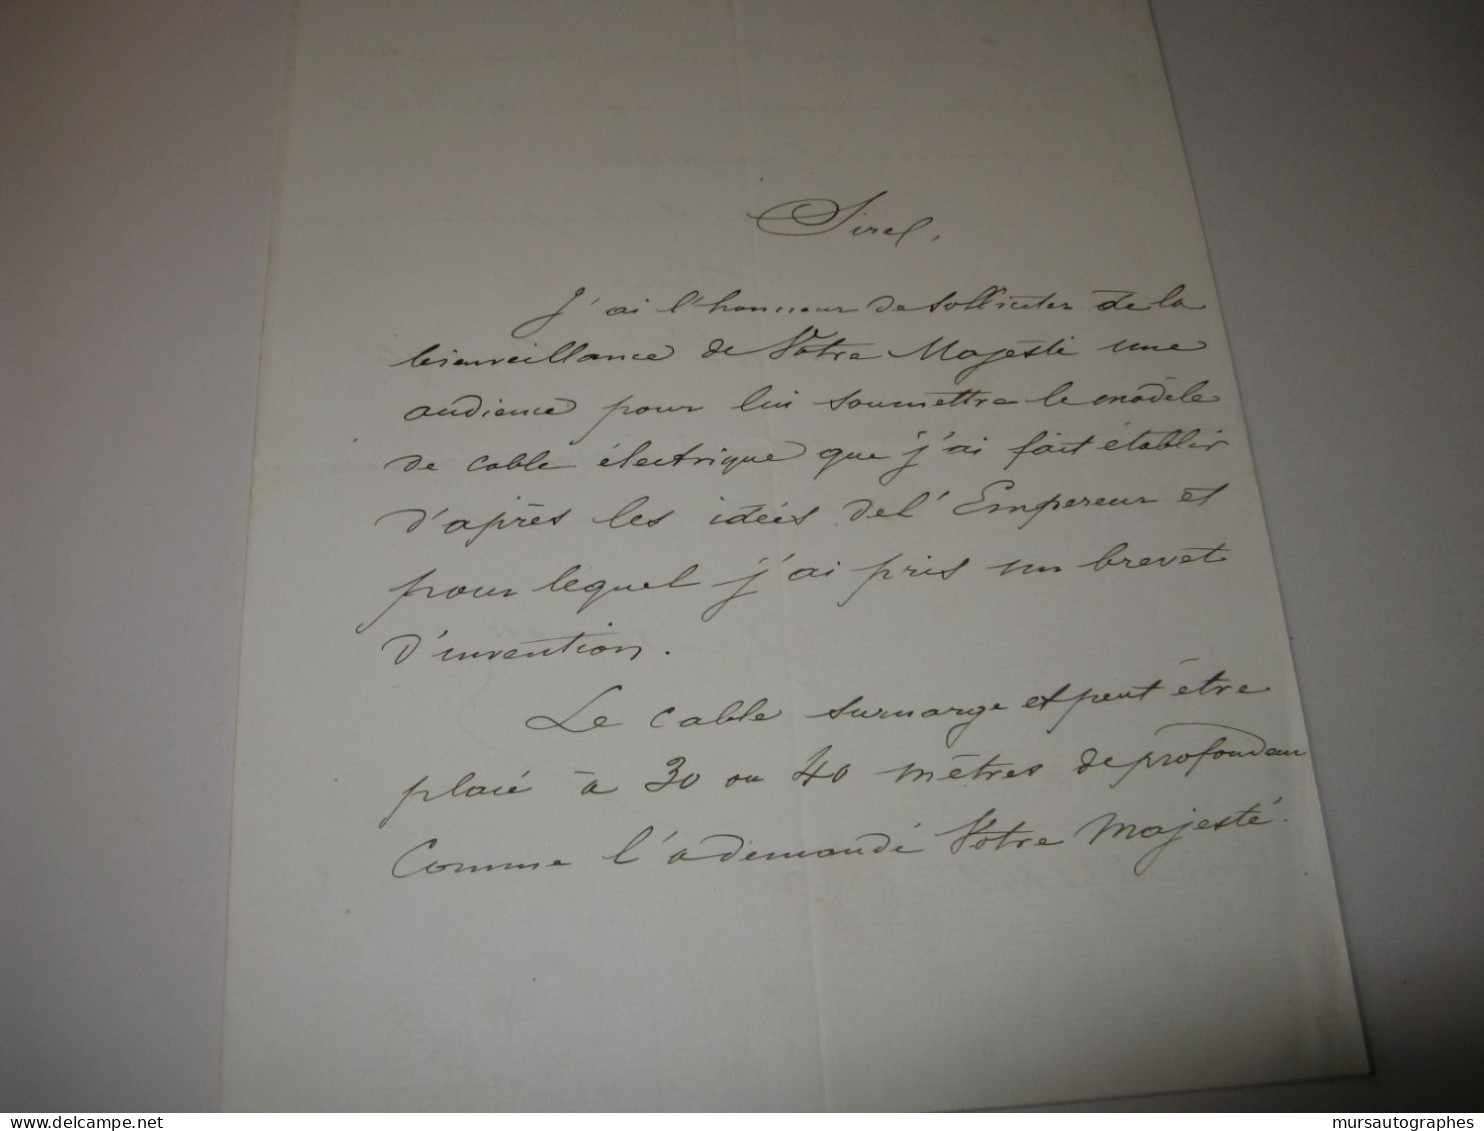 Sire,
J'ai l'honneur de solliciter de la
bienveillance de Votre Majesté une
audience pour lui soumettre le modèle
de cable électrique que j'ai fait établir
d'après les idées de l'Empereur et
pour lequel j'ai pris un brevet
d'invention.
Le cable surnage et peut être
placé à 30 ou 40 mètres de profondeur
Comme l'a demandé Votre Majesté.
delcampe.net
mursautographes